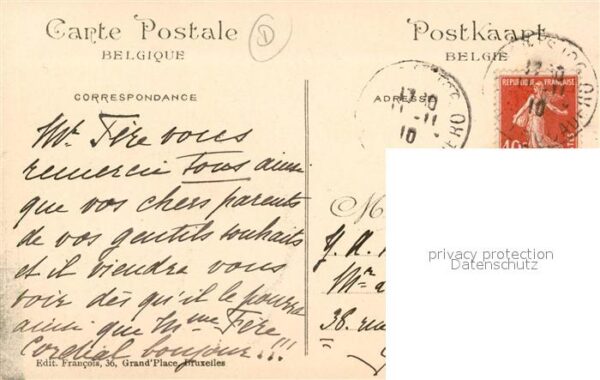 Carte Postale
BELGIQUE
D
Postkaart
BELGIË
CORRESPONDANCE
ADRESSE
REPUBLIQUE FRANÇAISE
10
17 30
11 - 11
10
Mr. Fère vous
remercie tous ainsi
que vos chers parents
de vos gentils souhaits
et il viendra vous
voir dès qu'il le pourra
ainsi que Mme Fère
Cordial bonjour!!!
M
Mr
38. rue
privacy protection
Datenschutz
Edit. François, 36, Grand'Place, Bruxelles